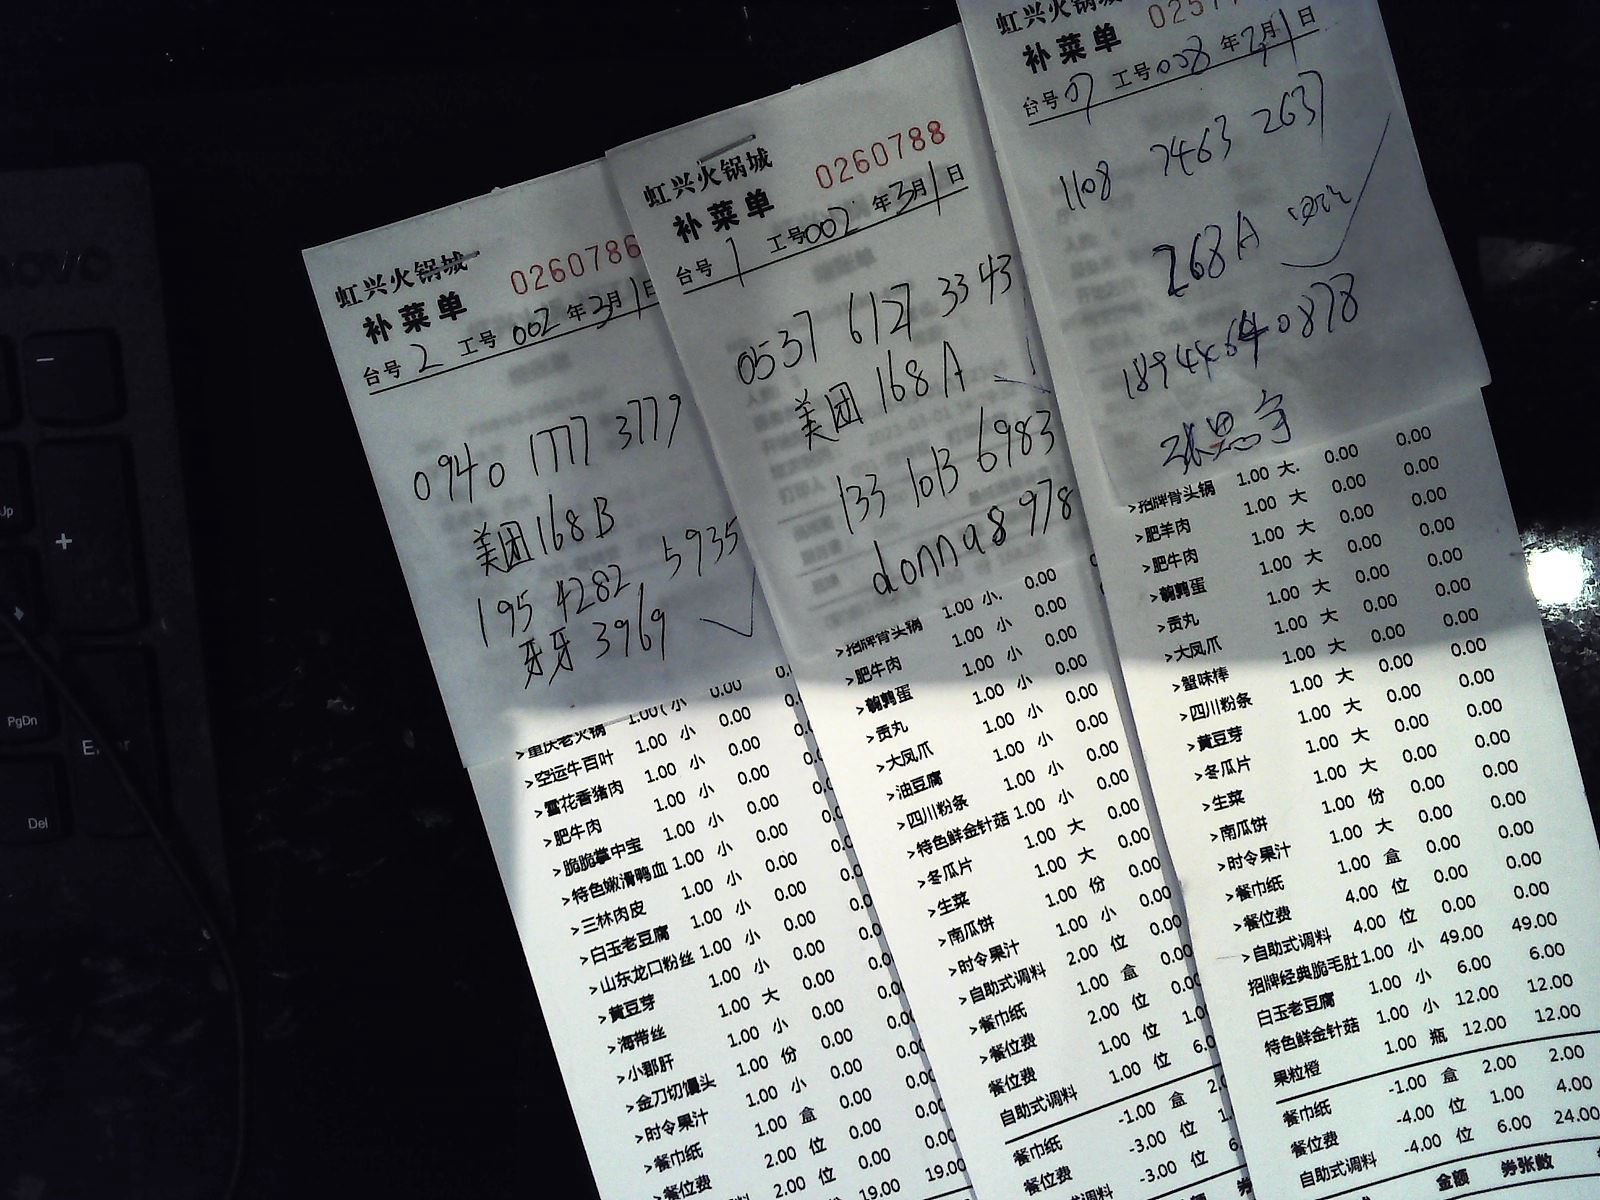 虹兴火锅城
补菜单 0260786
台号 2 工号 002 年 3月 1日
0940 1777 3779
美团168B
195 4282 5935
牙牙 3969
>重庆老火锅 1.00 小 0.00
>空运牛百叶 1.00 小 0.00
>雪花香猪肉 1.00 小 0.00
>肥牛肉 1.00 小 0.00
>脆脆掌中宝 1.00 小 0.00
>特色嫩滑鸭血 1.00 小 0.00
>三林肉皮 1.00 小 0.00
>白玉老豆腐 1.00 小 0.00
>山东龙口粉丝 1.00 小 0.00
>黄豆芽 1.00 小 0.00
>海带丝 1.00 大 0.00
>小郡肝 1.00 小 0.00
>金刀切馒头 1.00 份 0.00
>时令果汁 1.00 小 0.00
>餐巾纸 1.00 盒 0.00
>餐位费 2.00 位 0.00
2.00 位 0.00
19.00 19.00
虹兴火锅城
补菜单 0260788
台号 1 工号 002 年 3月 1日
0537 6127 3343
美团 168A
133 1013 6983
donna8978
>招牌骨头锅 1.00 小 0.00
>肥牛肉 1.00 小 0.00
>鹌鹑蛋 1.00 小 0.00
>贡丸 1.00 小 0.00
>大凤爪 1.00 小 0.00
>油豆腐 1.00 小 0.00
>四川粉条 1.00 小 0.00
>特色鲜金针菇 1.00 小 0.00
>冬瓜片 1.00 大 0.00
>生菜 1.00 大 0.00
>南瓜饼 1.00 份 0.00
>时令果汁 1.00 小 0.00
>自助式调料 2.00 位 0.00
>餐巾纸 1.00 盒 0.00
>餐位费 2.00 位 0.00
餐位费 1.00 位
自助式调料 1.00 位
餐巾纸 -1.00 盒
餐位费 -3.00 位
自助式调料 -3.00 位
虹兴火锅城
补菜单
台号 07 工号 008 年 3月 1日
1108 7463 2637
268A
18944640878
张思宇
>招牌骨头锅 1.00 大 0.00 0.00
>肥羊肉 1.00 大 0.00 0.00
>肥牛肉 1.00 大 0.00 0.00
>鹌鹑蛋 1.00 大 0.00 0.00
>贡丸 1.00 大 0.00 0.00
>大凤爪 1.00 大 0.00 0.00
>蟹味棒 1.00 大 0.00 0.00
>四川粉条 1.00 大 0.00 0.00
>黄豆芽 1.00 大 0.00 0.00
>冬瓜片 1.00 大 0.00 0.00
>生菜 1.00 大 0.00 0.00
>南瓜饼 1.00 份 0.00 0.00
>时令果汁 1.00 大 0.00 0.00
>餐巾纸 1.00 盒 0.00 0.00
>餐位费 4.00 位 0.00 0.00
>自助式调料 4.00 位 0.00 0.00
招牌经典脆毛肚 1.00 小 49.00 49.00
白玉老豆腐 1.00 小 6.00 6.00
特色鲜金针菇 1.00 小 12.00 12.00
果粒橙 1.00 瓶 12.00 12.00
餐巾纸 -1.00 盒 2.00 2.00
餐位费 -4.00 位 1.00 4.00
自助式调料 -4.00 位 6.00 24.00
金额 券张数
PgDn
Del